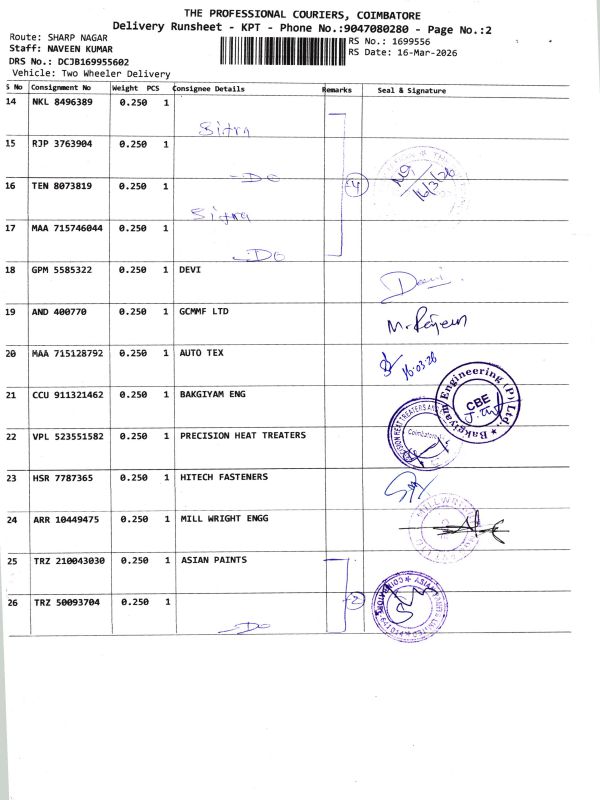 THE PROFESSIONAL COURIERS, COIMBATORE
Delivery Runsheet - KPT - Phone No.:9047080280 - Page No.:2
Route: SHARP NAGAR
RS No.: 1699556
Staff: NAVEEN KUMAR
RS Date: 16-Mar-2026
DRS No.: DCJB169955602
Vehicle: Two Wheeler Delivery
S No Consignment No Weight PCS Consignee Details Remarks Seal & Signature
14 NKL 8496389 0.250 1 Sitra
15 RJP 3763904 0.250 1 -Do
16 TEN 8073819 0.250 1 Sitra 4 16/3/26
17 MAA 715746044 0.250 1 -Do
18 GPM 5585322 0.250 1 DEVI Devi.
19 AND 400770 0.250 1 GCMMF LTD
20 MAA 715128792 0.250 1 AUTO TEX 16.03.26
21 CCU 911321462 0.250 1 BAKGIYAM ENG Bakgiyam Engineering (P) Ltd., CBE
22 VPL 523551582 0.250 1 PRECISION HEAT TREATERS Coimbatore
23 HSR 7787365 0.250 1 HITECH FASTENERS
24 ARR 10449475 0.250 1 MILL WRIGHT ENGG
25 TRZ 210043030 0.250 1 ASIAN PAINTS
26 TRZ 50093704 0.250 1 -Do 2